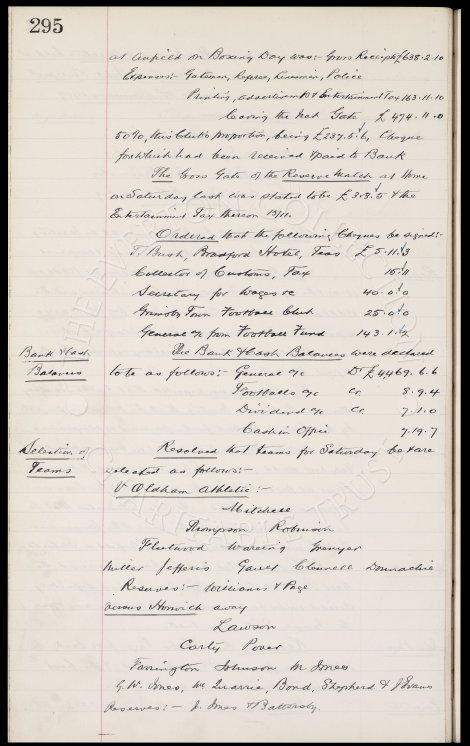 295
at Anfield on Boxing Day was:- Gross Receipts £638.2.10
Expenses:- Gatemen, Referee, Linesmen, Police
Printing, advertisements & Entertainment Tax 163.11.10
leaving the nett Gate £474.11.0
50%, this Club's proportion, being £237.5.6, Cheque
for which had been received & paid to Bank
The Gross Gate of the Reserve Match at Home
on Saturday last was stated to be £3.8.5 & the
Entertainment Tax thereon 15/11.
Ordered that the following Cheques be signed:-
T. Bush, Bradford Hotel, Teas £5.11.3
Collector of Customs, Tax 15.11
Secretary for Wages &c 40.0.0
Grimsby Town Football Club 25.0.0
General a/c from Football Fund 143.1.2
Bank & Cash
Balances
The Bank & Cash Balances were declared
to be as follows:- General a/c Dr £4,469.6.6
Footballs a/c Cr. 8.9.4
Dividend a/c Cr. 7.1.0
Cash in Office 7.19.7
Selection of
Teams
Resolved that teams for Saturday be & are
selected as follows:-
V Oldham Athletic:-
Mitchell
Thompson Robinson
Fleetwood Wareing Grenyer
Miller Jefferis Gault Clennell Donnachie
Reserves:- Williams & Page
versus Horwich away
Lawson
Carty Pover
Farrington Johnson M Jones
G.W. Jones, Bond, Shepherd & J Evans
Reserves:- J. Jones & Battersby.